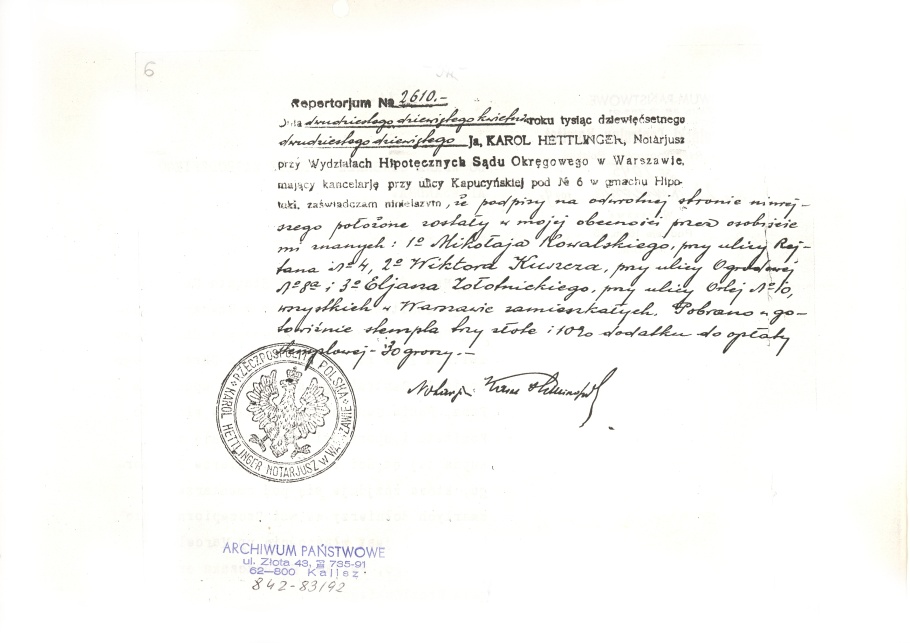 6
Repertorjum № 2610.-
Dnia dwudziestego dziewiątego kwietnia roku tysiąc dziewięćsetnego
dwudziestego dziewiątego Ja, KAROL HETTLINGER, Notarjusz
przy Wydziałach Hipotecznych Sądu Okręgowego w Warszawie,
mający kancelarję przy ulicy Kapucyńskiej pod № 6 w gmachu Hipo-
teki, zaświadczam niniejszym, że podpisy na odwrotnej stronie niniej-
szego położone zostały w mojej obecności przez osobiście
mi znanych: 1º Mikołaja Kowalskiego, przy ulicy Rej-
tana № 4, 2º Wiktora Kuszcza, przy ulicy Ogrodowej
№ 8ª i 3º Eljana Zołotnickiego, przy ulicy Orlej № 10,
wszystkich w Warszawie zamieszkałych. Pobrano w go-
towiźnie stempla trzy złote i 10% dodatku do opłaty
stemplowej - 30 groszy.-
Notarjusz Karol Hettlinger
RZECZPOSPOLITA POLSKA
KAROL HETTLINGER NOTARJUSZ w WARSZAWIE
ARCHIWUM PAŃSTWOWE
ul. Złota 43, ☎ 735-91
62-800 Kalisz
842-83/92